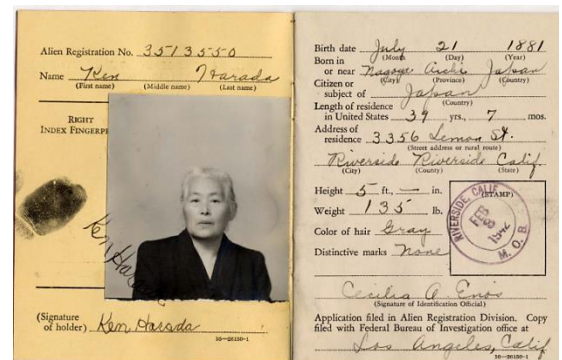 Alien Registration No. 3513550
Name Ken Harada
(First name) (Middle name) (Last name)
RIGHT
INDEX FINGERP
Ken Har
(Signature
of holder) Ken Harada
16—26150-1
Birth date July 21 1881
(Month) (Day) (Year)
Born in
or near Nagoya Aichi Japan
(City) (Province) (Country)
Citizen or
subject of Japan
(Country)
Length of residence
in United States 39 yrs., 7 mos.
Address of
residence 3356 Lemon St.
(Street address or rural route)
Riverside Riverside Calif.
(City) (County) (State)
Height 5 ft., — in.
(STAMP)
Weight 135 lb.
RIVERSIDE, CALIF.
FEB
1942
M. O. B.
Color of hair Gray
Distinctive marks None
Cecilia A. Enos
(Signature of Identification Official)
Application filed in Alien Registration Division. Copy
filed with Federal Bureau of Investigation office at
Los Angeles, Calif
16—26150-1